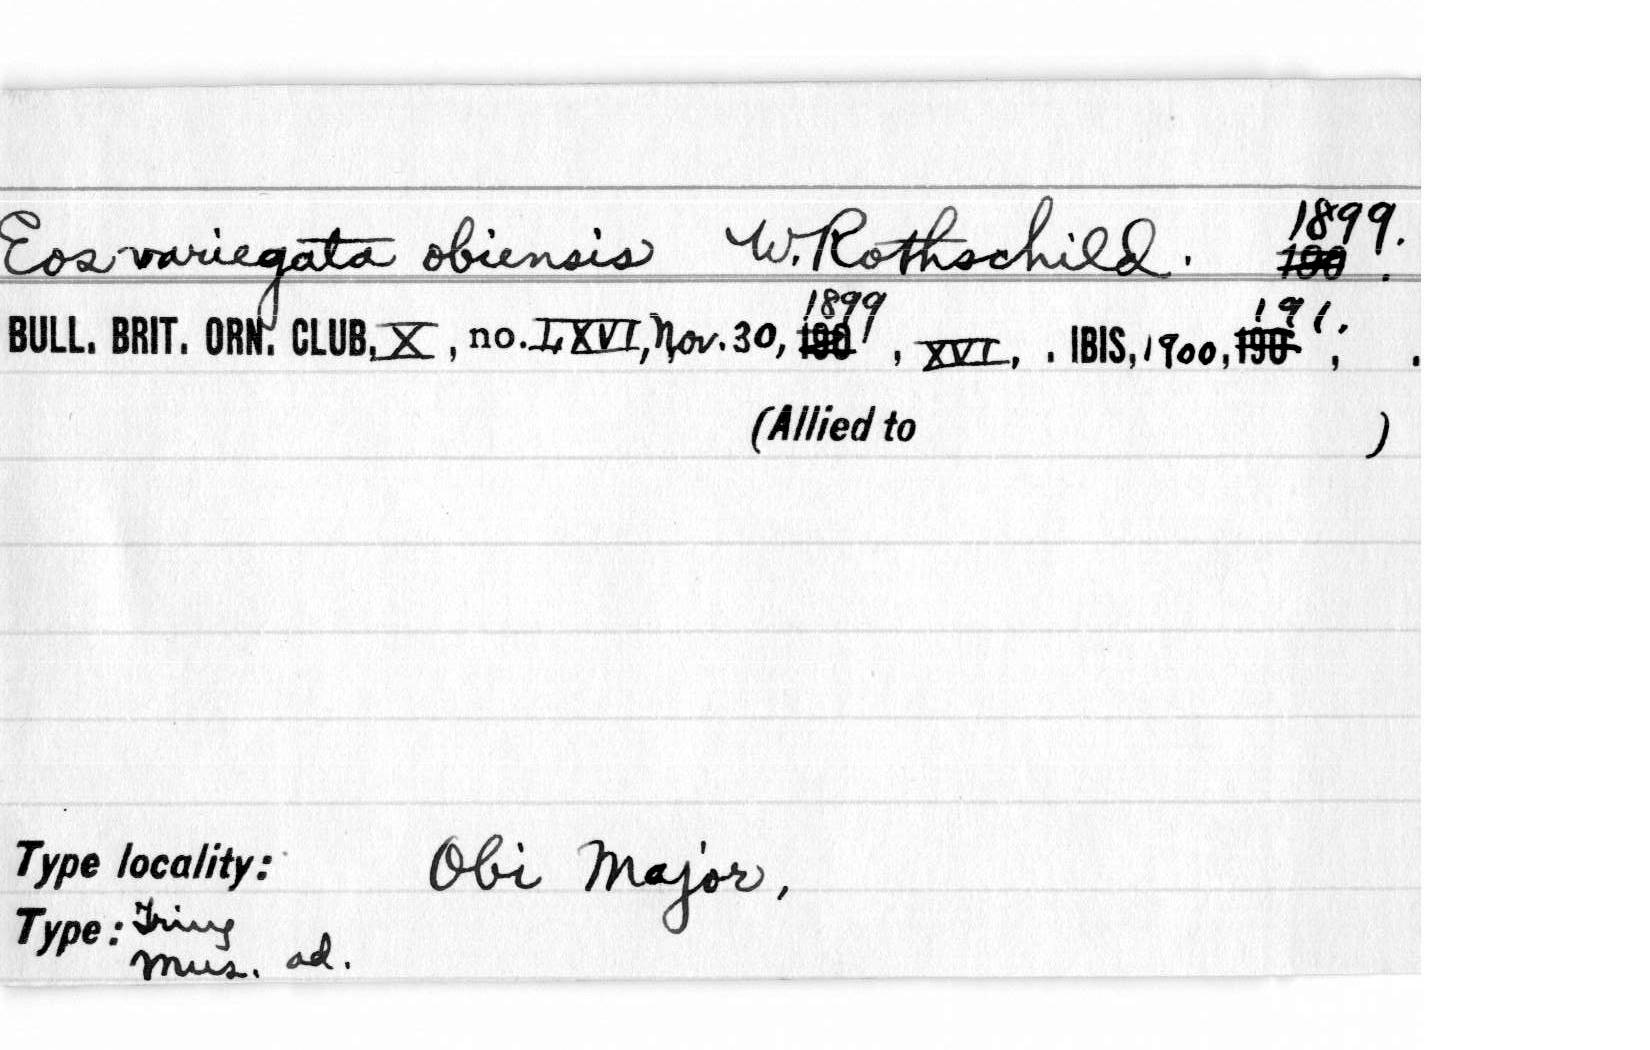 Eos variegata obiensis W. Rothschild. 1899.
BULL. BRIT. ORN. CLUB, X, no. LXVI, Nov. 30, 1899, XVI, . IBIS, 1900, 191.
(Allied to )
Type locality: Obi Major,
Type: Tring
Mus. ad.